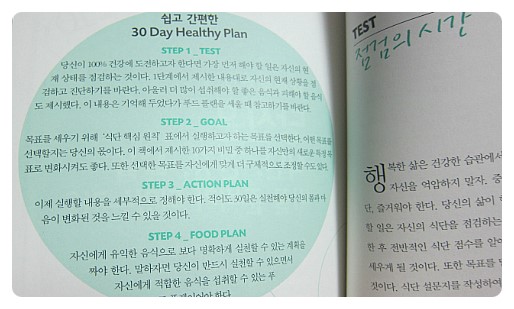 쉽고 간편한
30 Day Healthy Plan
STEP 1 _ TEST
당신이 100% 건강에 도전하고자 한다면 가장 먼저 해야 할 일은 자신의 현
재 상태를 점검하는 것이다. 1단계에서 제시한 내용대로 자신의 현재 상황을 점
검하고 진단하기를 바란다. 아울러 더 많이 섭취해야 할 좋은 음식과 피해야 할 음식
도 제시했다. 이 내용은 기억해 두었다가 푸드 플랜을 세울 때 참고하기를 바란다.
STEP 2 _ GOAL
목표를 세우기 위해 '식단 핵심 원칙' 표에서 실행하고자 하는 목표를 선택한다. 어떤 목표를
선택할지는 당신의 몫이다. 이 책에서 제시한 10가지 비밀 중 하나를 자신만의 새로운 목
표로 변화시켜도 좋다. 또한 선택한 목표를 자신에게 맞게 더 구체적으로 조정할 수도 있다.
STEP 3 _ ACTION PLAN
이제 실행할 내용을 세부적으로 정해야 한다. 적어도 30일은 실천해야 당신의 몸과 마
음이 변화된 것을 느낄 수 있을 것이다.
STEP 4 _ FOOD PLAN
자신에게 유익한 음식으로 보다 명확하게 실천할 수 있는 계획을
짜야 한다. 말하자면 당신이 반드시 실천할 수 있으면서
자신에게 적합한 음식을 섭취할 수 있는 푸
TEST
점검의 시간
행복한 삶은 건강한 습관에서
자신을 억압하지 말자. 중
단, 즐거워야 한다. 당신의 삶이
할 일은 자신의 식단을 점검하는
한 후 전반적인 식단 점수를
세우게 될 것이다. 또한 목표를
것이다. 식단 설문지를 작성하여